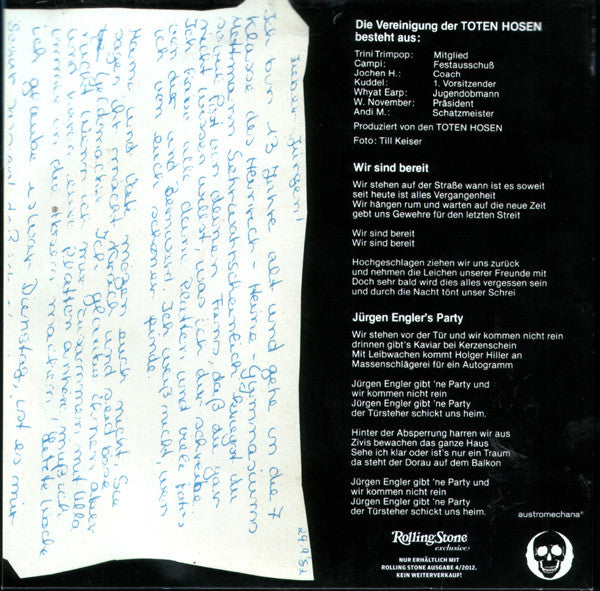 24.9.82
Lieber Jürgen!
Ich bin 13 Jahre alt und gehe in die 7
Klasse des Heinrich-Heine-Gymnasiums
Mettmann. Sehr wahrscheinlich kriegst du
soviel Post von deinen Fans daß du gar
nicht wissen willst, was ich dir schreibe
Ich habe alle deine Platten und viele Fotos
von dir und Ich weiß nicht, wen
ich von euch schöner finde
Mama und mögen euch nicht. Sie
sagen ihr macht Krach und seid böse
Ich glaube Ihnen aber
nicht wenn ich zusammen mit Ulla
und von euch Platten anhöre, muß ich
immer in die Hosen machen, letzte Woche
ich glaube es war Dienstag, ist es mir
Die Vereinigung der TOTEN HOSEN
besteht aus:
Trini Trimpop: Mitglied
Campi: Festausschuß
Jochen H.: Coach
Kuddel: 1. Vorsitzender
Whyat Earp: Jugendobmann
W. November: Präsident
Andi M.: Schatzmeister
Produziert von den TOTEN HOSEN
Foto: Till Keiser
Wir sind bereit
Wir stehen auf der Straße wann ist es soweit
seit heute ist alles Vergangenheit
Wir hängen rum und warten auf die neue Zeit
gebt uns Gewehre für den letzten Streit
Wir sind bereit
Wir sind bereit
Hochgeschlagen ziehen wir uns zurück
und nehmen die Leichen unserer Freunde mit
Doch sehr bald wird dies alles vergessen sein
und durch die Nacht tönt unser Schrei
Jürgen Engler's Party
Wir stehen vor der Tür und wir kommen nicht rein
drinnen gibt's Kaviar bei Kerzenschein
Mit Leibwachen kommt Holger Hiller an
Massenschlägerei für ein Autogramm
Jürgen Engler gibt 'ne Party und
wir kommen nicht rein
Jürgen Engler gibt 'ne Party
der Türsteher schickt uns heim.
Hinter der Absperrung harren wir aus
Zivis bewachen das ganze Haus
Sehe ich klar oder ist's nur ein Traum
da steht der Dorau auf dem Balkon
Jürgen Engler gibt 'ne Party und
wir kommen nicht rein
Jürgen Engler gibt 'ne Party
der Türsteher schickt uns heim.
austromechana®
Rolling Stone
exclusive
NUR ERHÄLTLICH MIT
ROLLING STONE AUSGABE 4/2012.
KEIN WEITERVERKAUF!